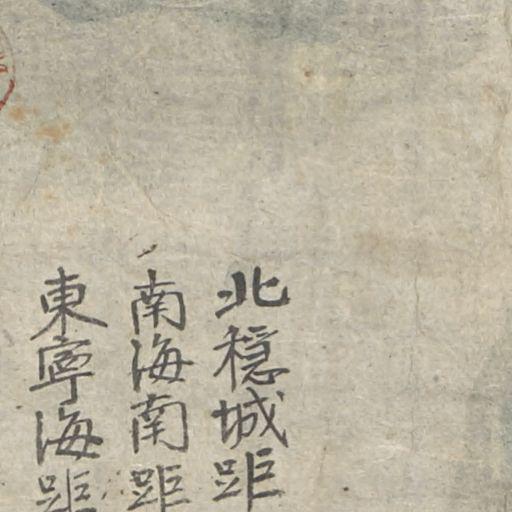 北穩城距
南海南距
東寧海距